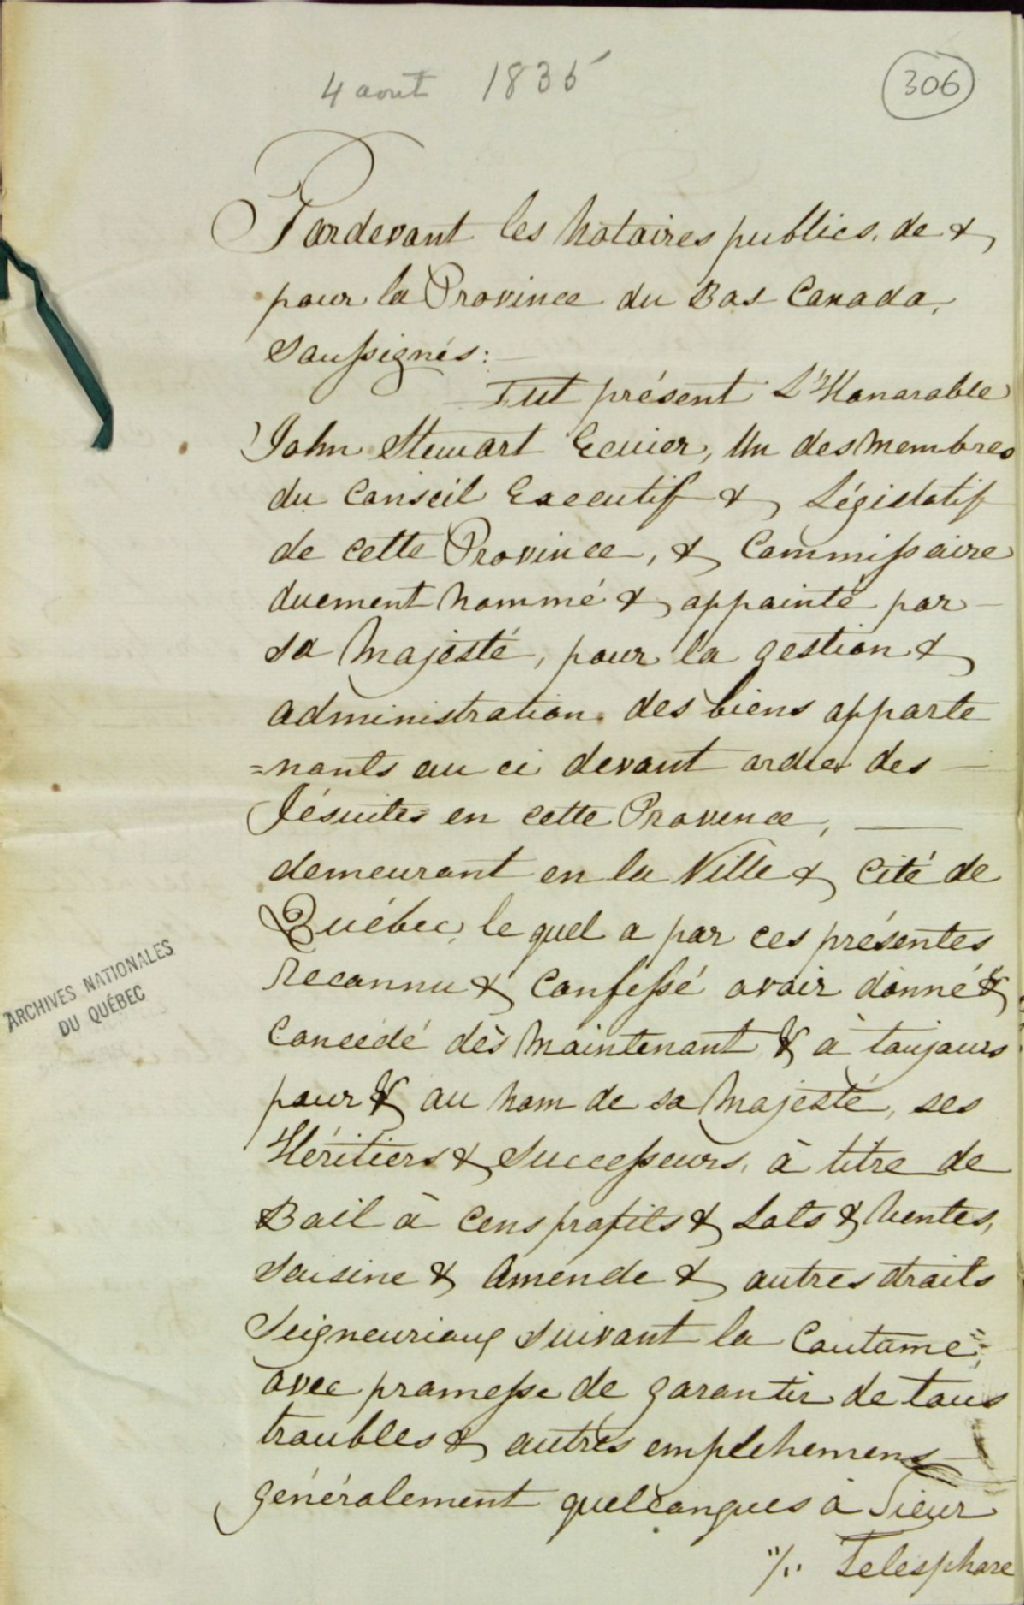 4 aout 1835
306
Pardevant les Notaires publics, de &
pour la Province du Bas Canada,
Soussignés:
Fut présent L'Honorable
John Stewart Ecuier, Un des Membres
du Conseil Executif & Législatif
de cette Province, & Commissaire
duement nommé & appointé par
Sa Majesté, pour la gestion &
administration des biens apparte
=nants au ci devant ordre des
Jésuites en cette Province,
demeurant en la Ville & Cité de
Québec, le quel a par ces présentes
Reconnu & Confessé avoir donné &
Concédé dès Maintenant & à toujours
pour & au nom de sa Majesté, ses
Héritiers & Successeurs, à titre de
Bail à Cens profits & Lots & Ventes,
Saisine & Amende & autres droits
Seigneuriaux suivant la Coutume,
avec promesse de garantir de tous
troubles & autres empêchemens
généralement quelconques à Sieur
"/" Telesphore
ARCHIVES NATIONALES
DU QUÉBEC